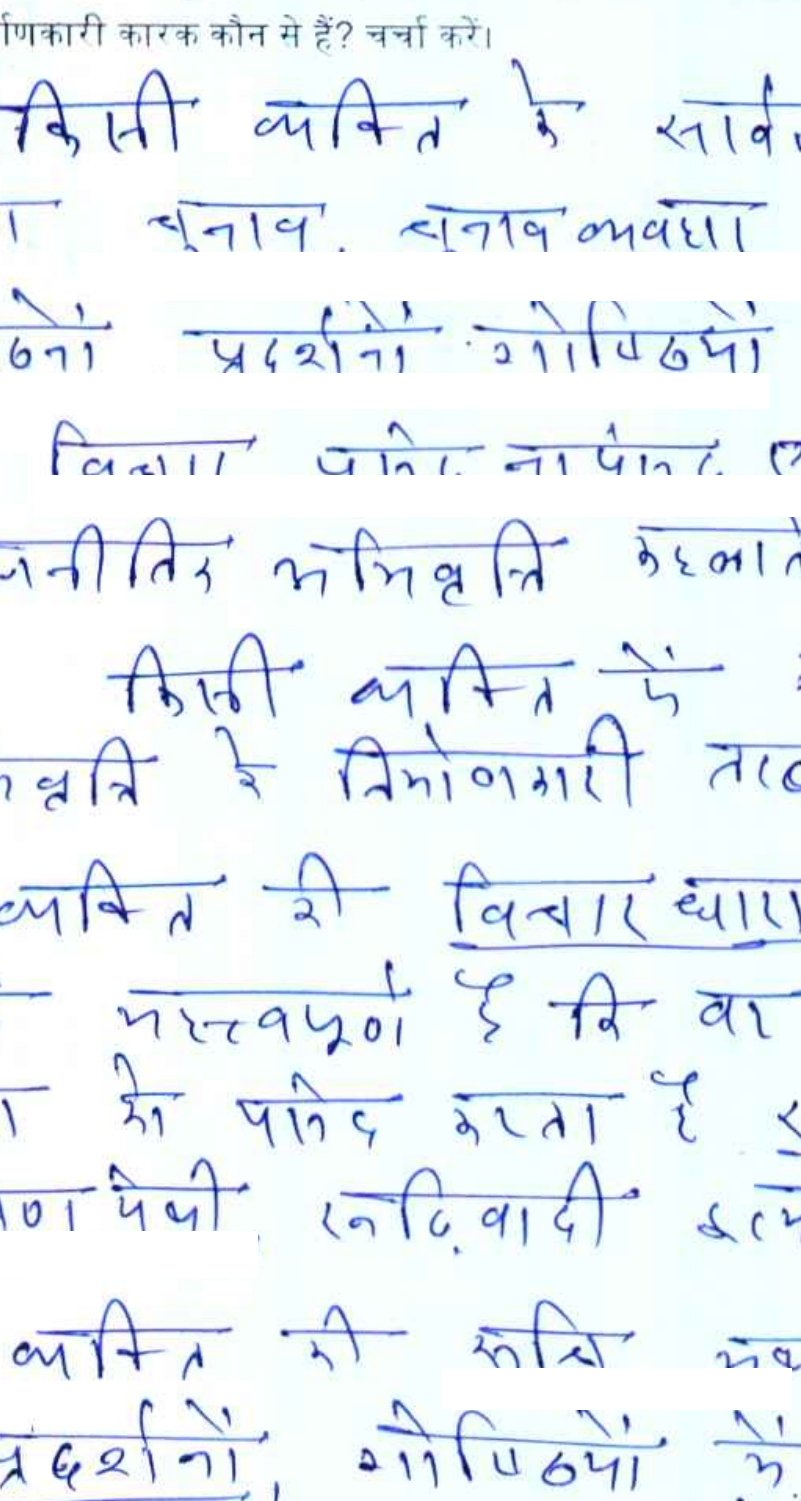 र्णकारी कारक कौन से हैं? चर्चा करें।
किसी व्यक्ति के सार्व
ा चुनाव, चुनाव व्यवस्था
ठनों प्रदर्शनों गोष्ठियों
विचार पसंद नापसंद
जनीतिक अभिवृत्ति कहलात
किसी व्यक्ति में
वृत्ति के निर्माणकारी तत्व
व्यक्ति की विचारधारा
महत्वपूर्ण है कि वह
को पसंद करता है
पंथी रूढ़िवादी इत्य
व्यक्ति की रूचि
प्रदर्शनों, गोष्ठियों में